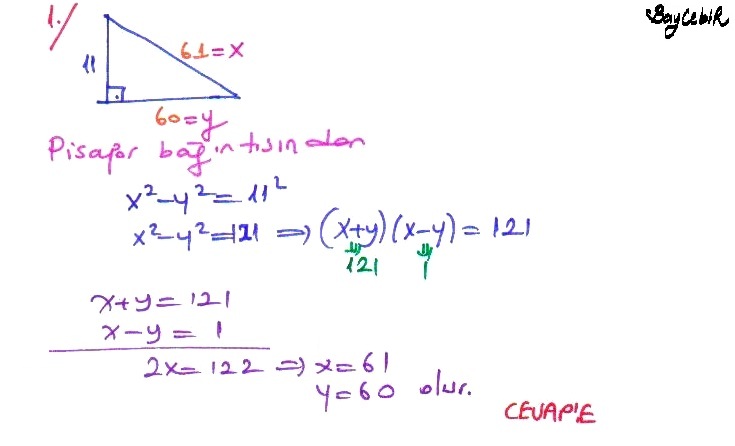 BayCebiR
1./
11
61=x
60=y
Pisagor bağıntısından
x²-y²=11²
x²-y²=121 ⇒ (x+y)(x-y)=121
121 1
x+y=121
x-y=1
2x=122 ⇒ x=61
y=60 olur.
CEVAP:E